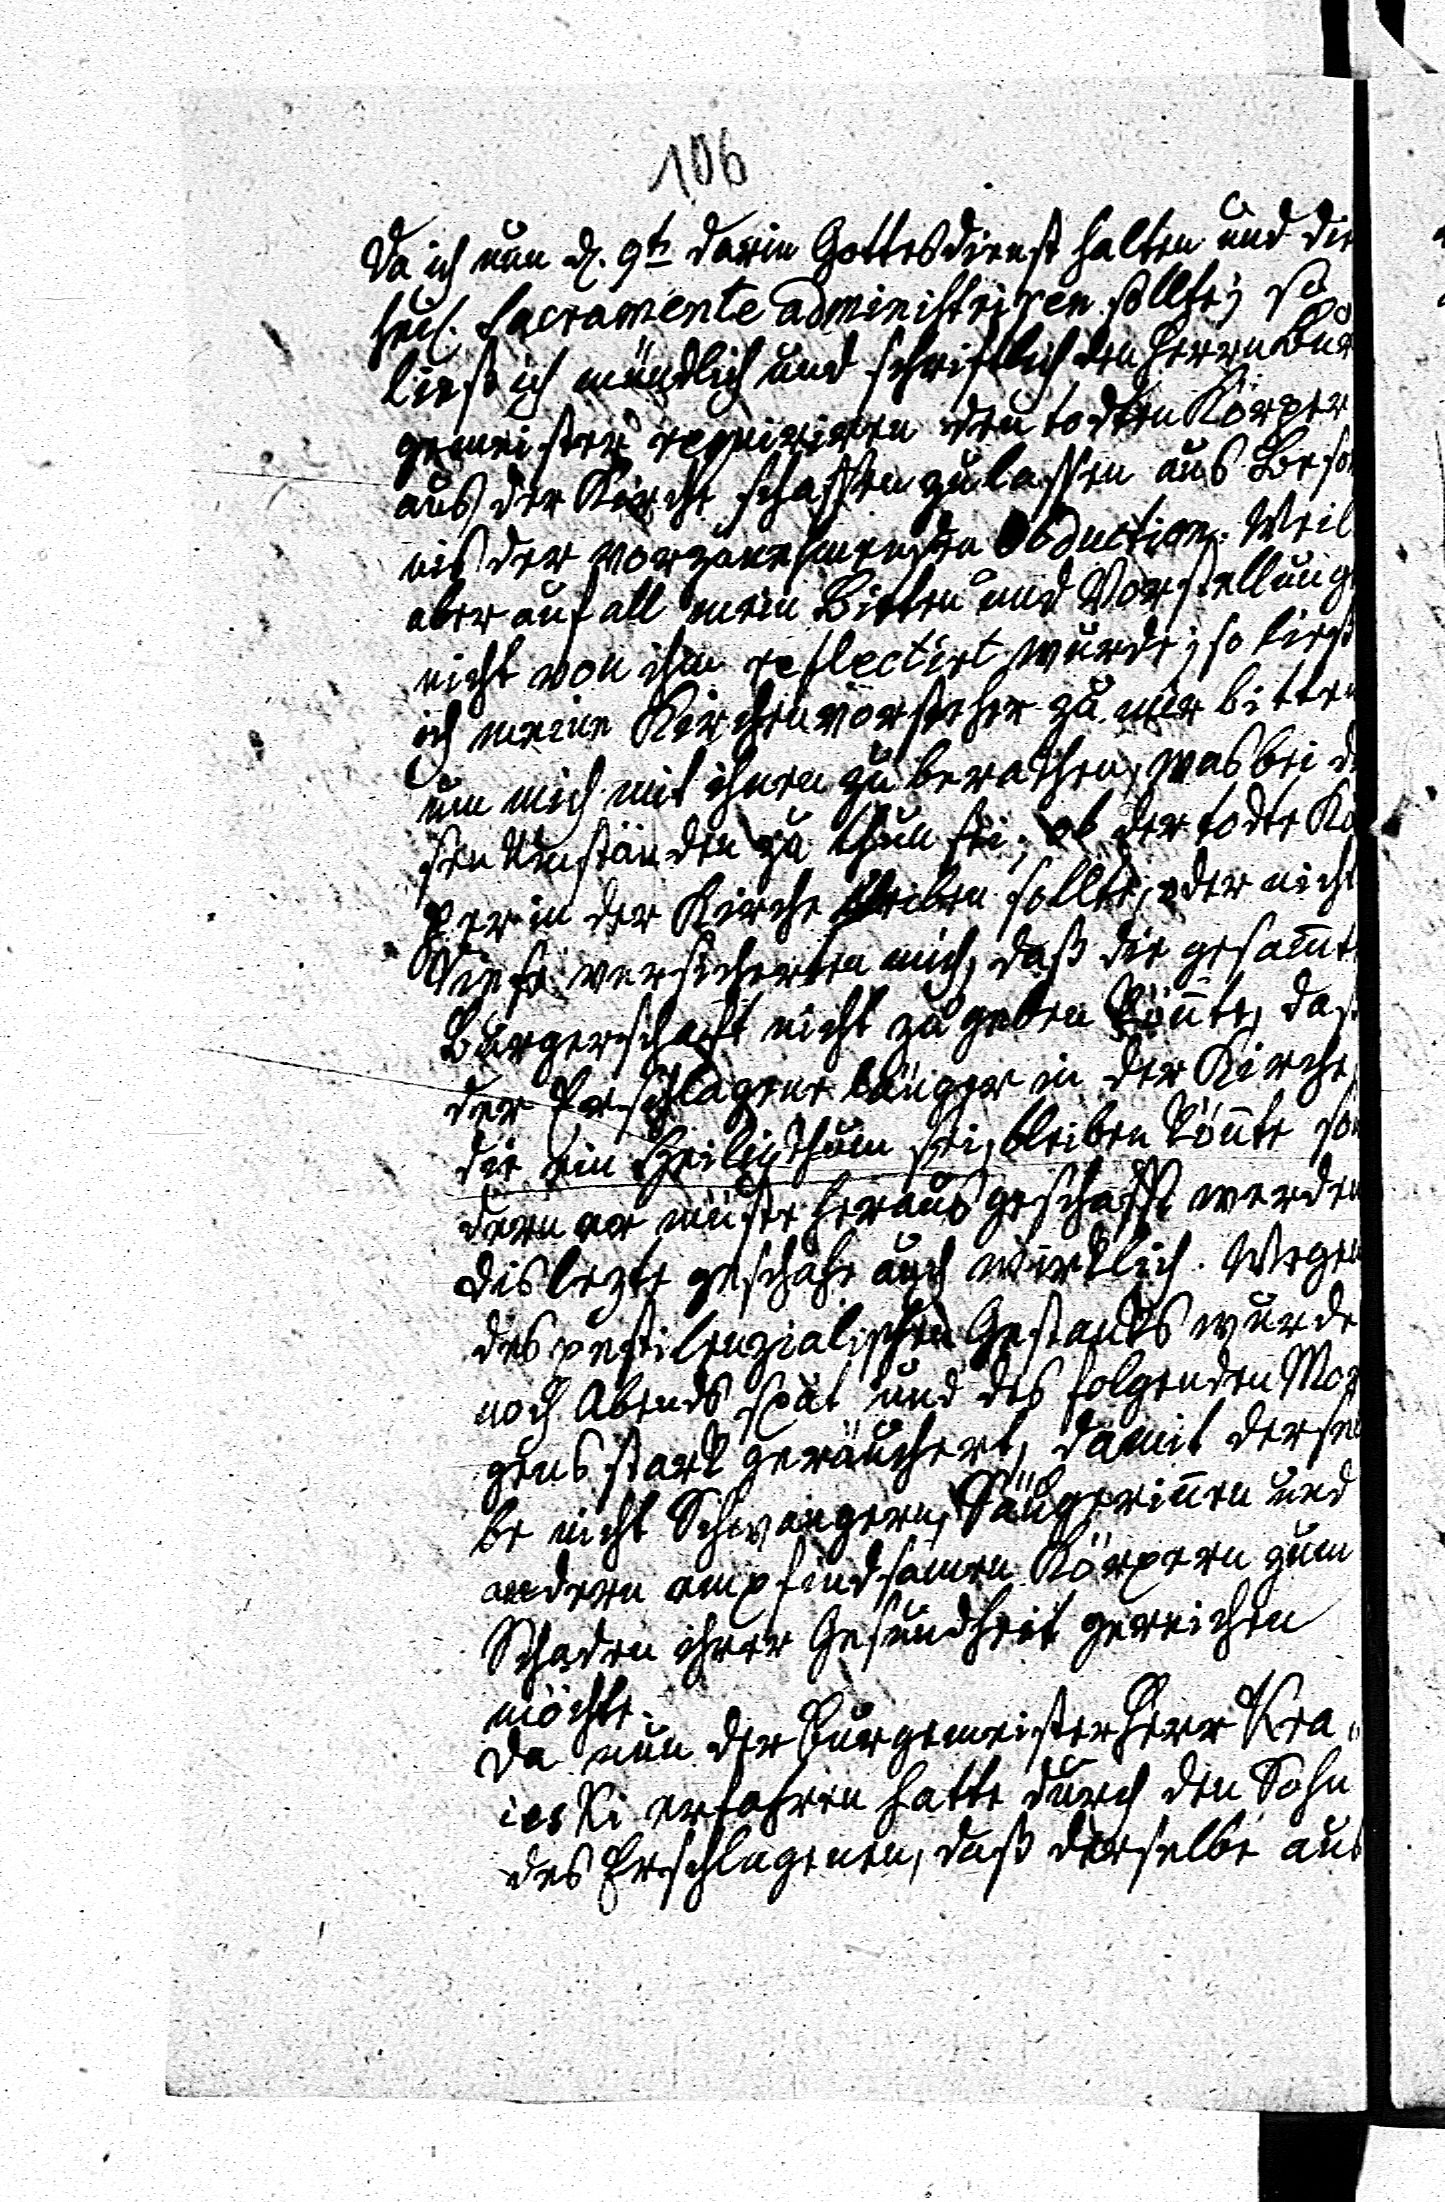 106
Da ich nun d. 9t. darin Gottesdienst halten und die
heil. Sacramente administriren sollte; so
ließ ich mündlich und schriftlich den Herrn Bur
gemeister requiriren den todten Körper
aus der Kirche schaffen zu lassen aus Besor
nis der vorzunehmenden Obduction. Weil
aber auf all mein Bitten und Vorstellunge
nicht von ihm reflectirt wurde; so ließ
ich meine Kirchenvorsteher zu mir bitten
um mich mit ihnen zu berathen, was bei die
sen Umständen zu thun sei; ob der todte Kör
per in der Kirche bleiben sollte, oder nicht
Diese versicherten mich, daß die gesam̄te
Bürgerschaft nicht zugeben kön̄te, daß
der Erschlagene länger in der Kirche,
die ein Heiligthum sei, bleiben kön̄te son
dern er müste herausgeschafft werden
dis lezte geschahe auch würklich. Wegen
des pestilenzialischen Gestanks wurde
noch Abends spät und des folgenden Mor
gens stark geräuchert, damit dersel
be nicht Schwangern, Säugerin̄en und
andern empfindsamen Körpern zum
Schaden ihrer Gesundheit gereichen
möchte.
Da nun der Burgemeister Herr Kra
ieski erfahren hatte durch den Sohn
des Erschlagenen, daß derselbe aus